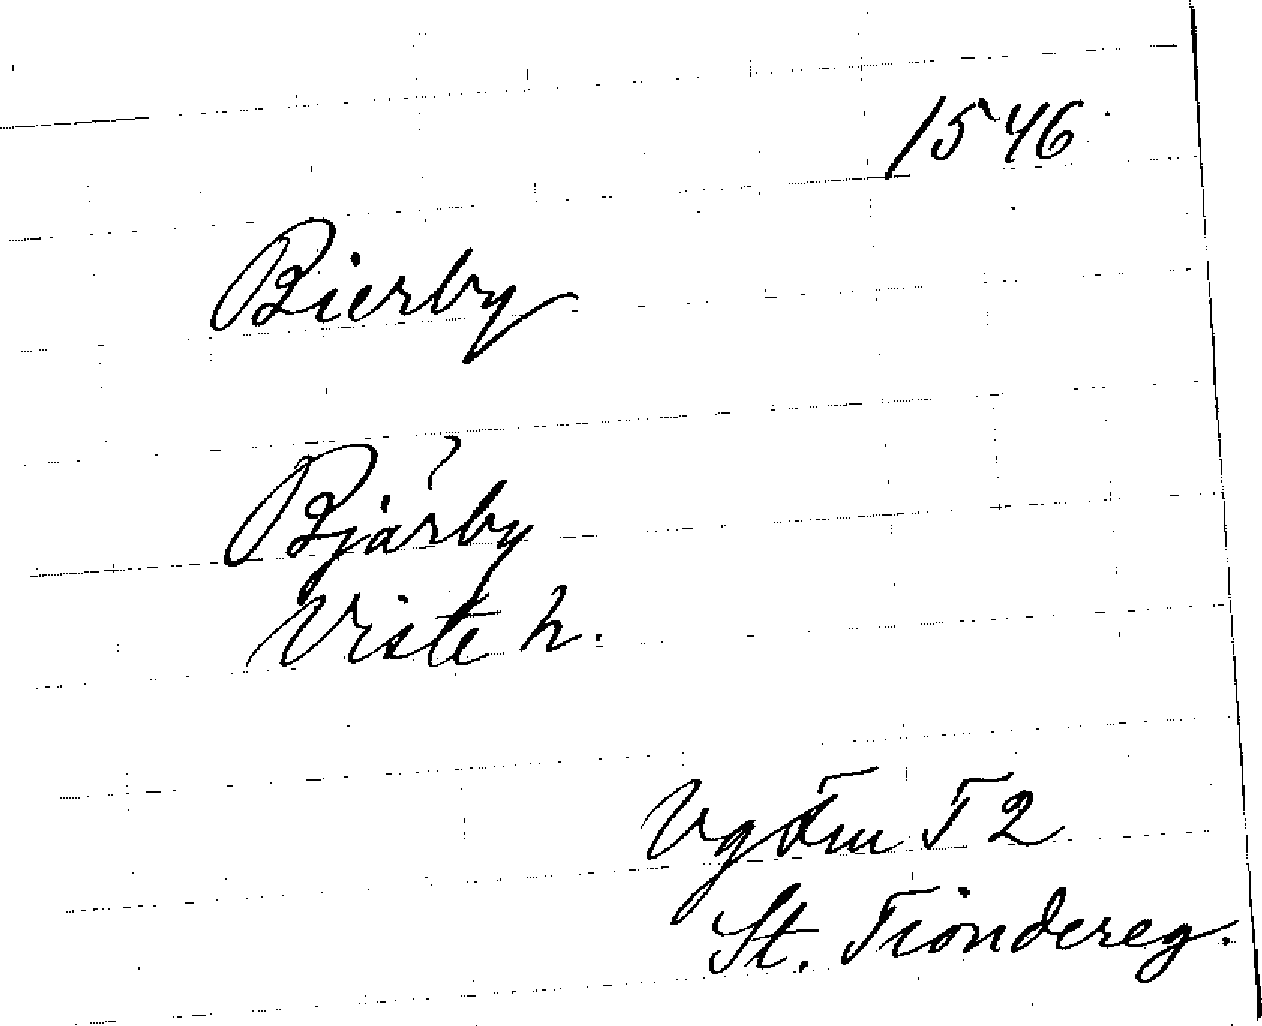 1546
Bierby
?
Bjärby
Viste h.
Vg Tiu T 2
St. Tiondereg.